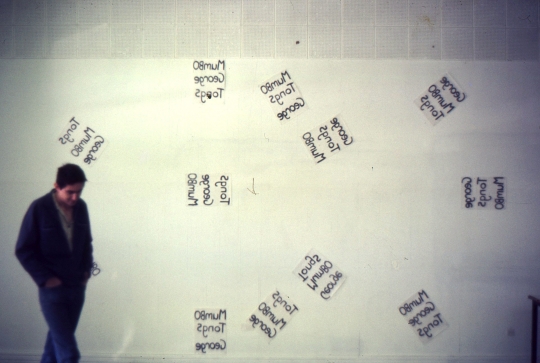 MumBO
George
Tongs
MumBO
Tongs
George
George
MumBO
Tongs
George
Tongs
MumBO
Tongs
MumBO
George
MumBO
George
Tongs
George
Tongs
MumBO
Tongs
MumBO
George
Tongs
MumBO
George
MumBO
Tongs
George
MumBO
George
Tongs